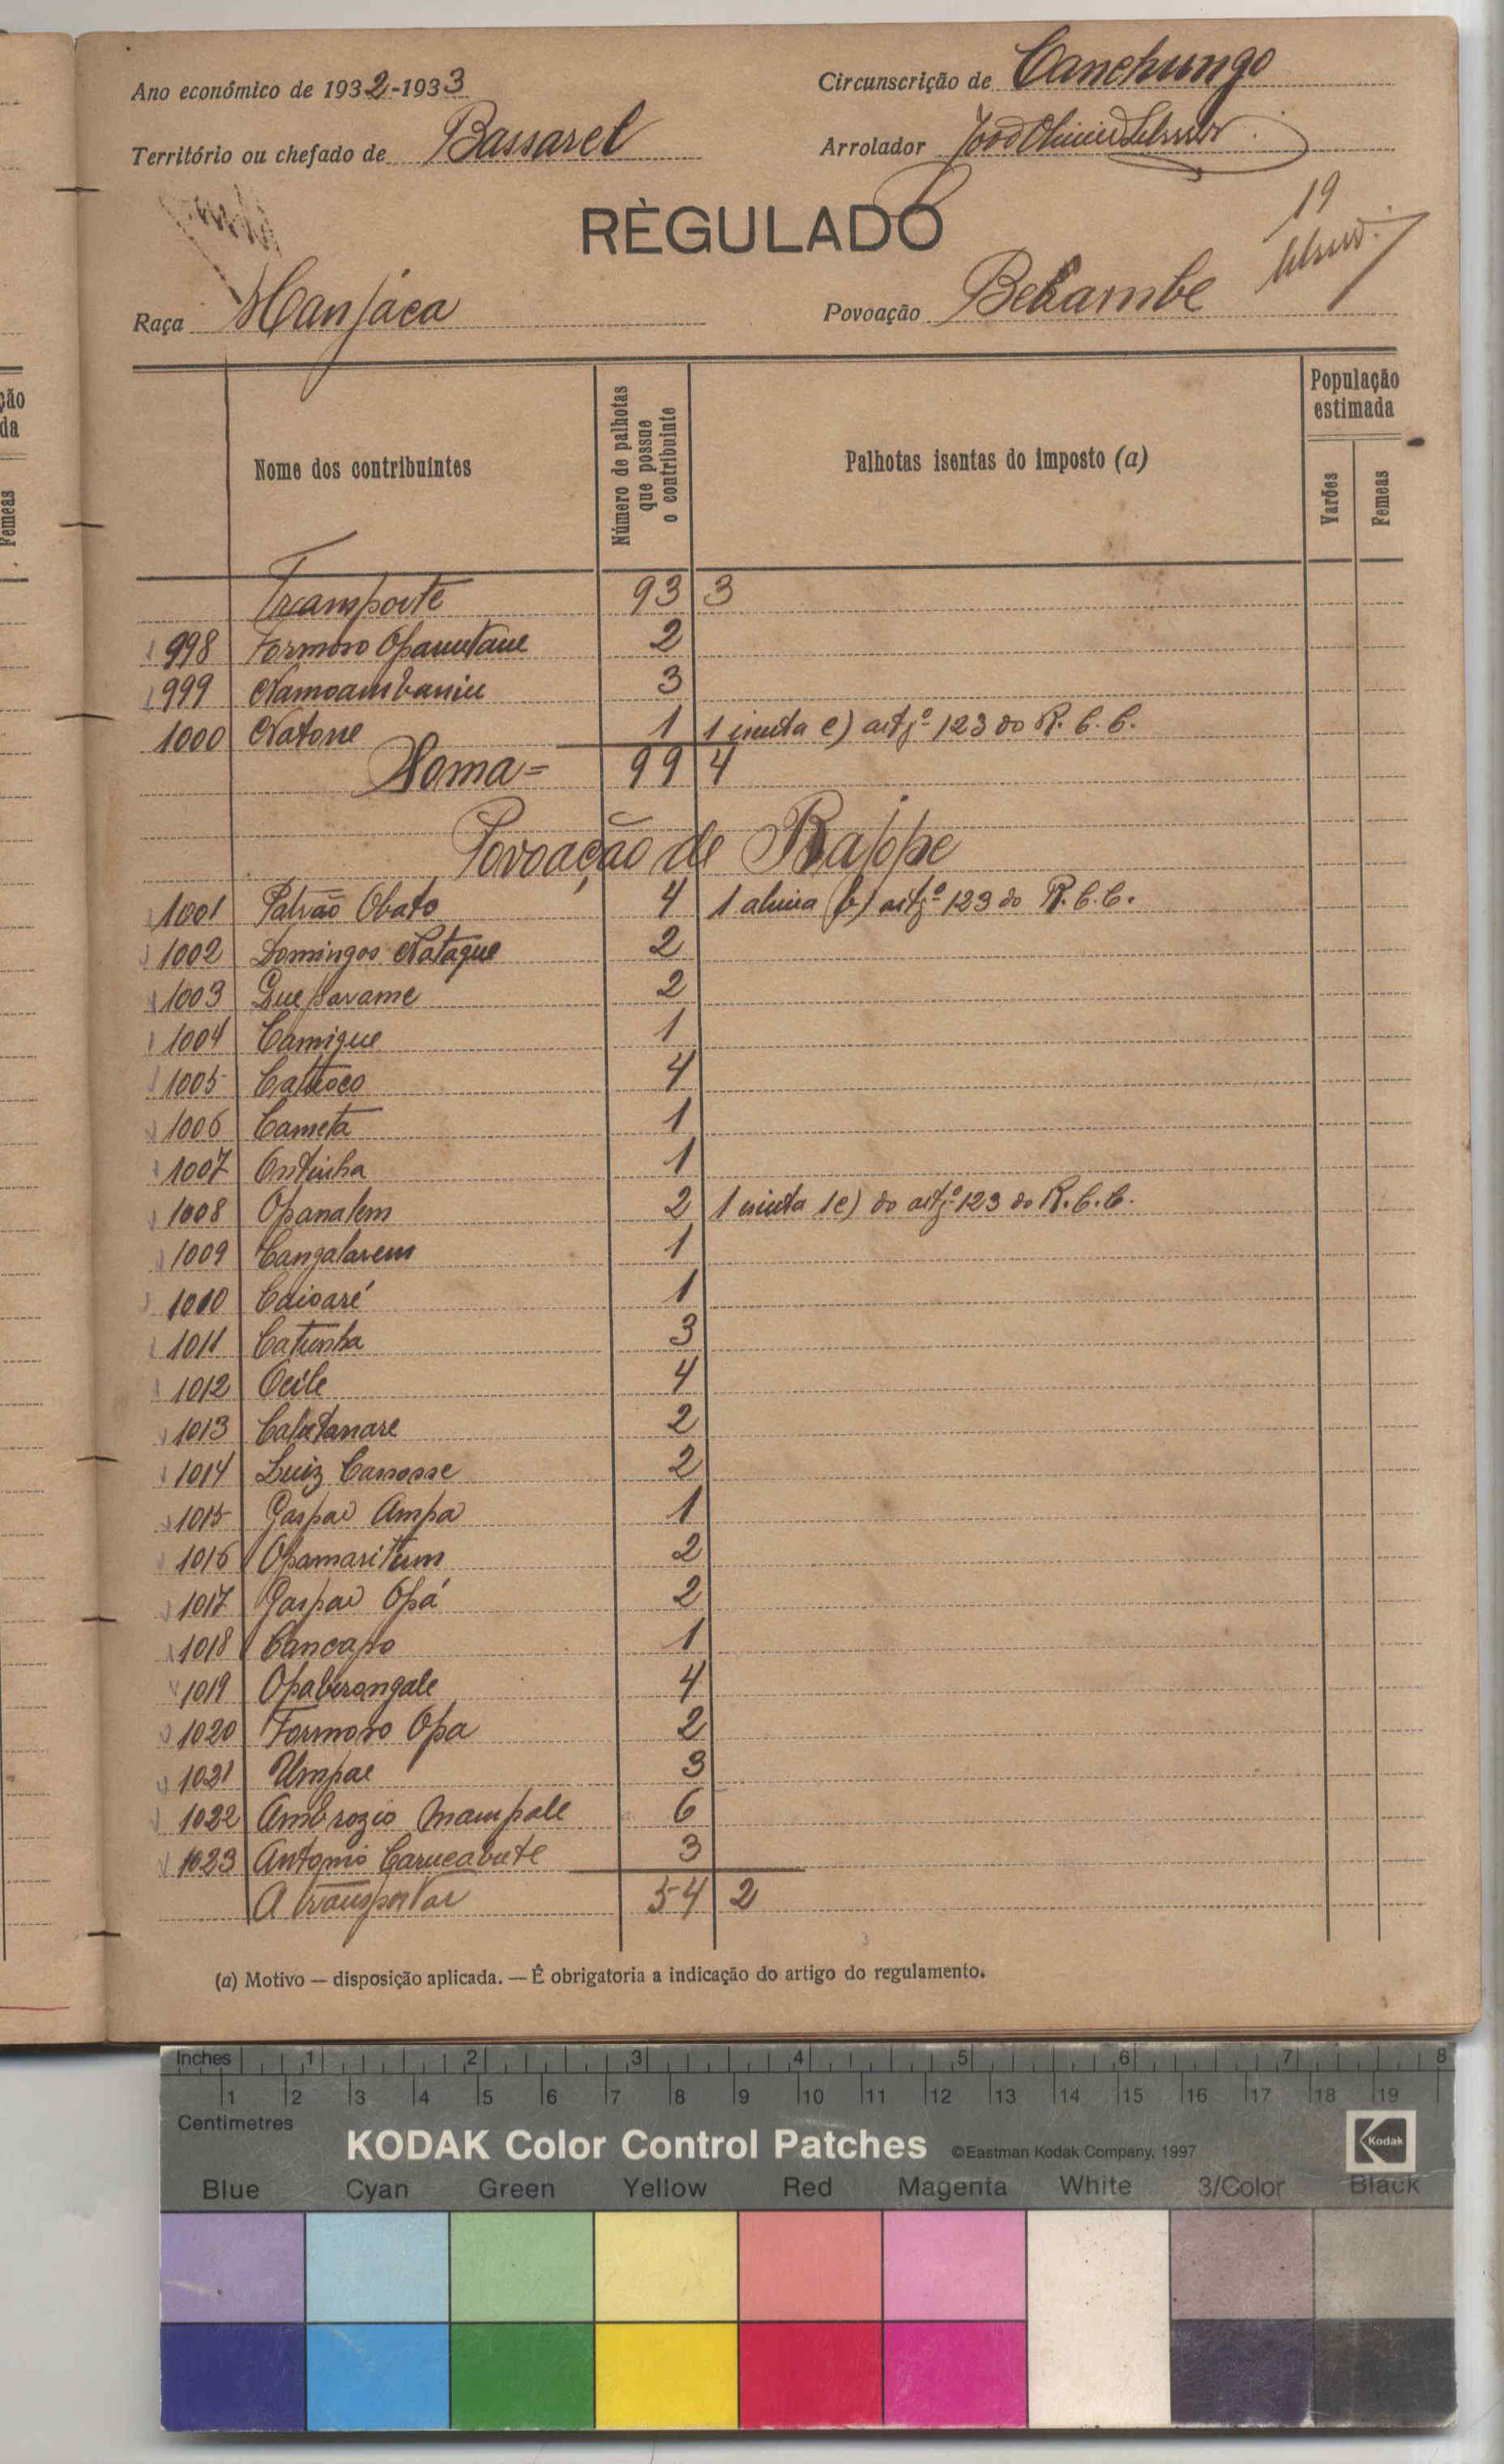 Ano económico de 1932-1933
Circunscrição de Canchungo
Território ou chefado de Bassarel
Arrolador
19
RÈGULADO
Raça Manjáca
Povoação Bekambe
Nome dos contribuintes
Número de palhotas que possue o contribuinte
Palhotas isentas do imposto (a)
População estimada
Varões
Femeas
Transporte 93 3
998 Formoso Opamtane 2
999 Namoambaniu 3
1000 Natone 1 1 isenta e) artgº 123 do R. C. C.
Soma= 99 4
Povoação de Bajope
1001 Patrão Obato 4 1 alinia b) artgº 123 do R. C. C.
1002 Domingos Nataque 2
1003 2
1004 Camique 1
1005 4
1006 Cameta 1
1007 Ontinha 1
1008 Opanalem 2 1 isenta 1e) do artgº 123 do R. C. C.
1009 Cangalarem 1
1010 Caioaré 1
1011 Catunha 3
1012 Ocile 4
1013 Caletanare 2
1014 Luiz Canosse 2
1015 Gaspar Ampa 1
1016 Opamaritum 2
1017 Gaspar Opá 2
1018 Cancapo 1
1019 Opaberangale 4
1020 Formoso Opa 2
1021 Umpae 3
1022 Ambrozio Mampale 6
1023 Antonio Carucabute 3
A transportar 54 2
(a) Motivo — disposição aplicada. — É obrigatoria a indicação do artigo do regulamento.
ção
da
Femeas
Inches 1 2 3 4 5 6 7 8
1 2 3 4 5 6 7 8 9 10 11 12 13 14 15 16 17 18 19
Centimetres
KODAK Color Control Patches ©Eastman Kodak Company, 1997 Kodak
Blue Cyan Green Yellow Red Magenta White 3/Color Black